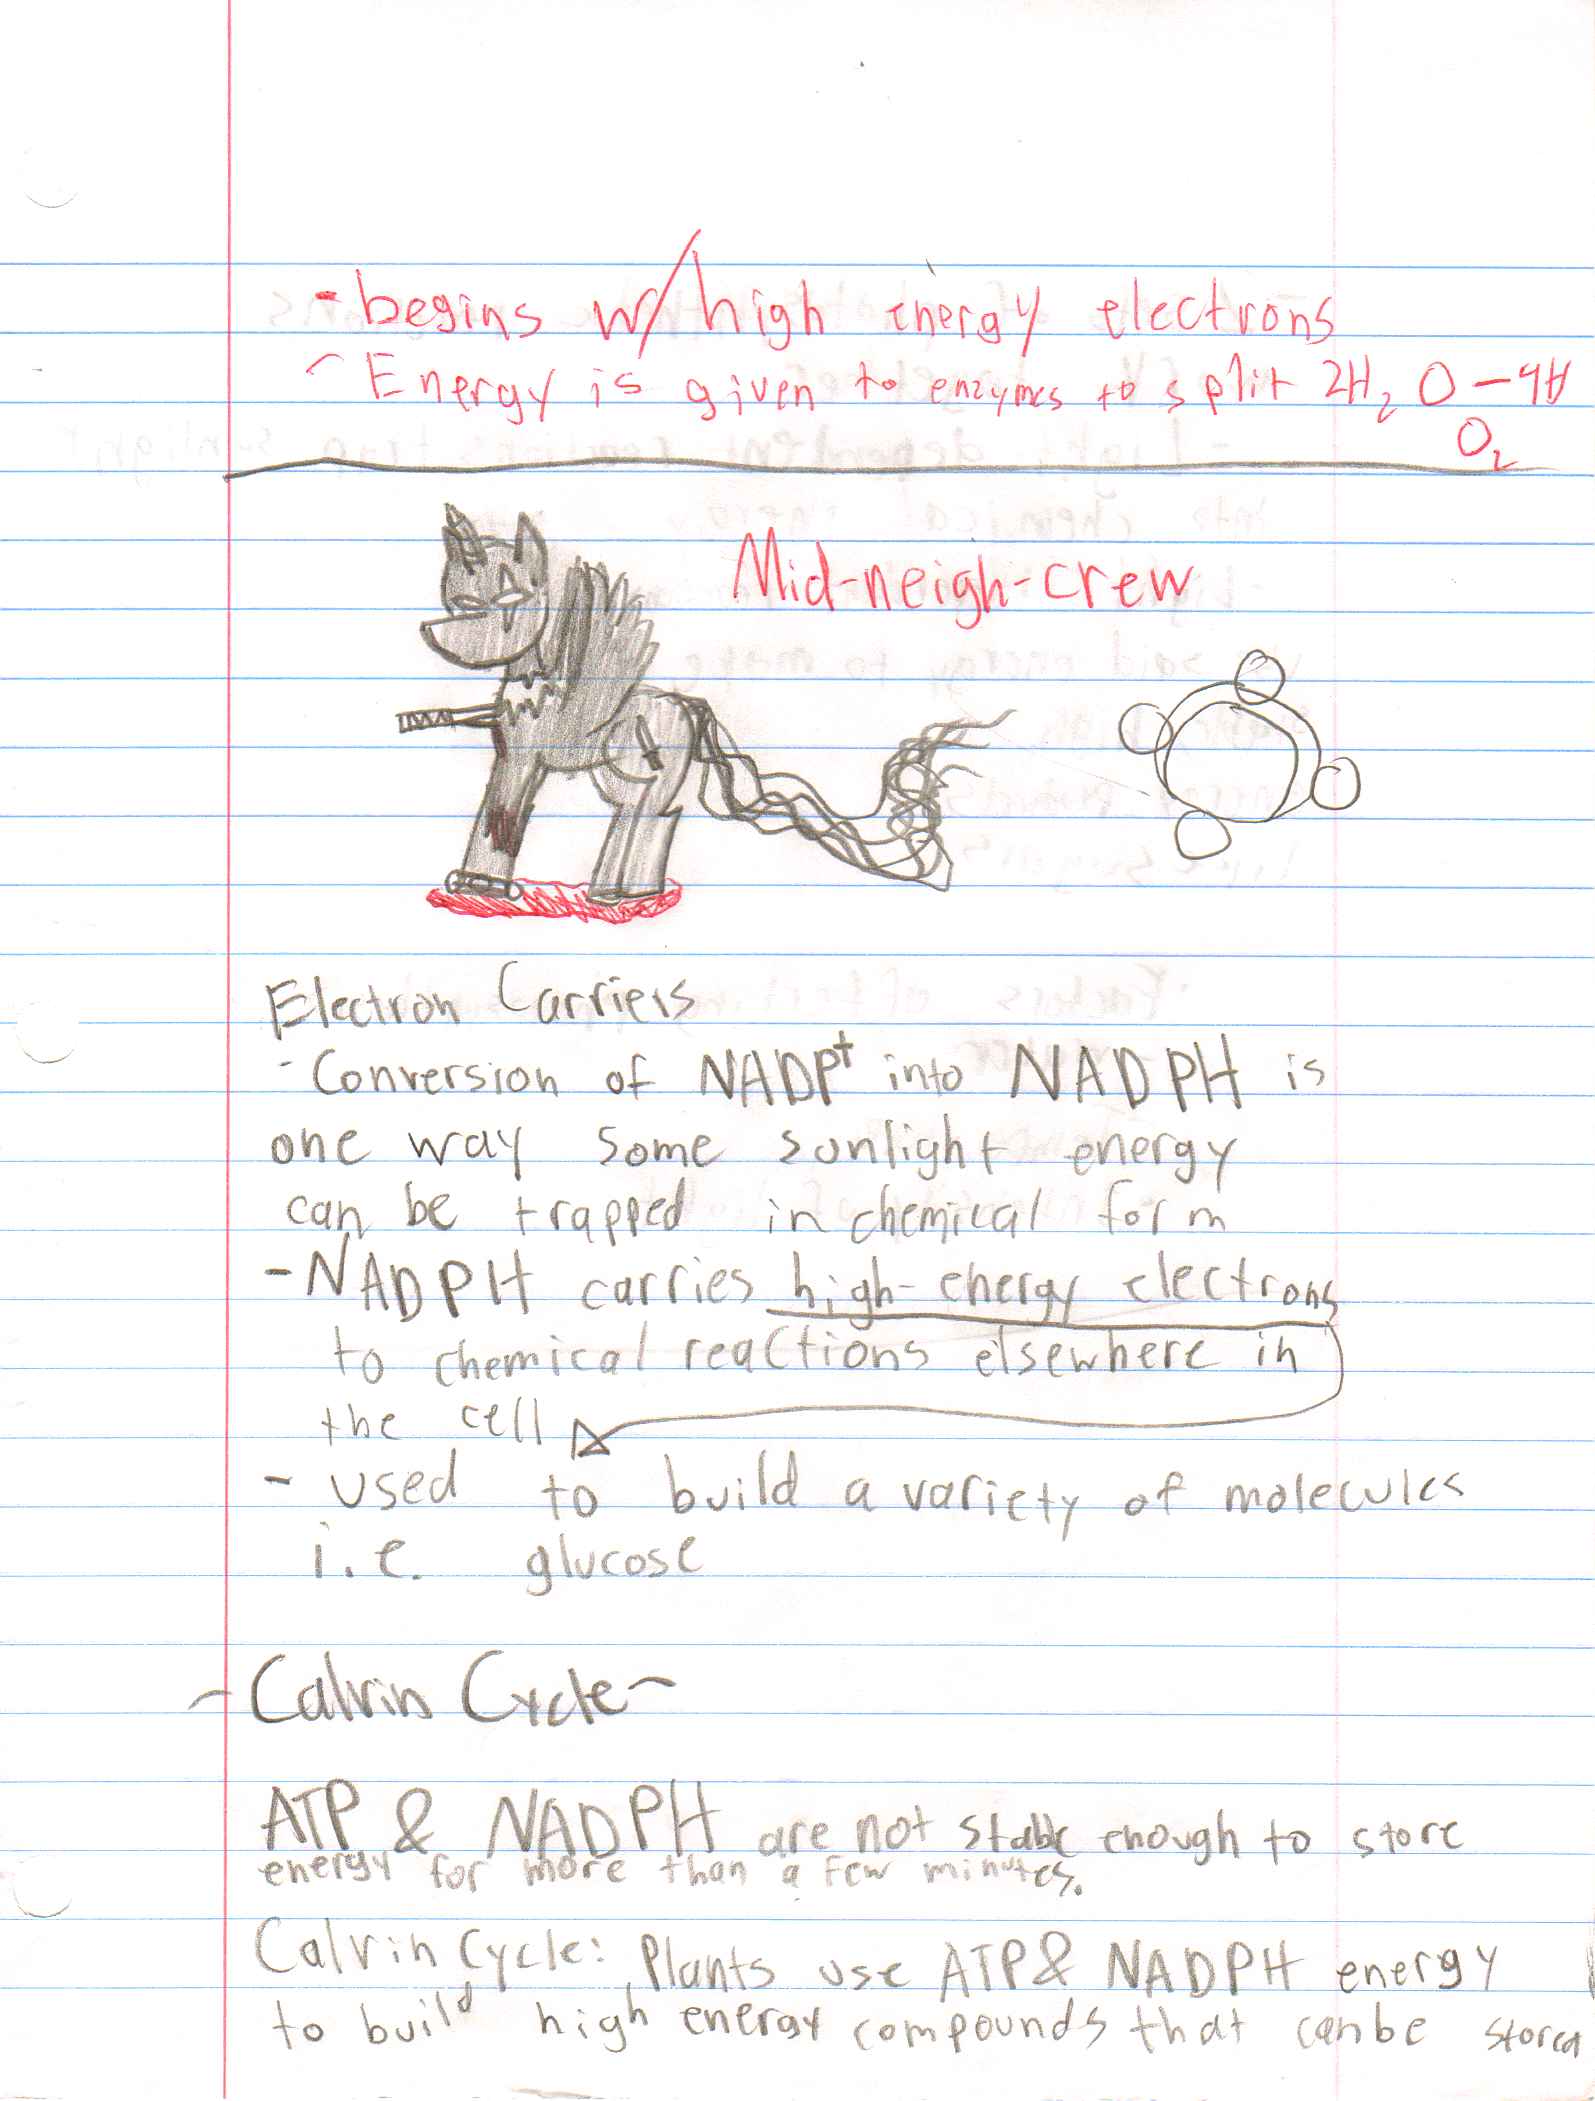 - begins w/ high energy electrons
- Energy is given to enzymes to split 2H₂O - 4H
O₂
Mid-neigh-crew
Electron Carriers
- Conversion of NADP⁺ into NADPH is
one way some sunlight energy
can be trapped in chemical form
- NADPH carries high-energy electrons
to chemical reactions elsewhere in
the cell
- used to build a variety of molecules
i.e. glucose
~Calvin Cycle~
ATP & NADPH are not stable enough to store
energy for more than a few minutes.
Calvin Cycle: Plants use ATP & NADPH energy
to build high energy compounds that can be stored